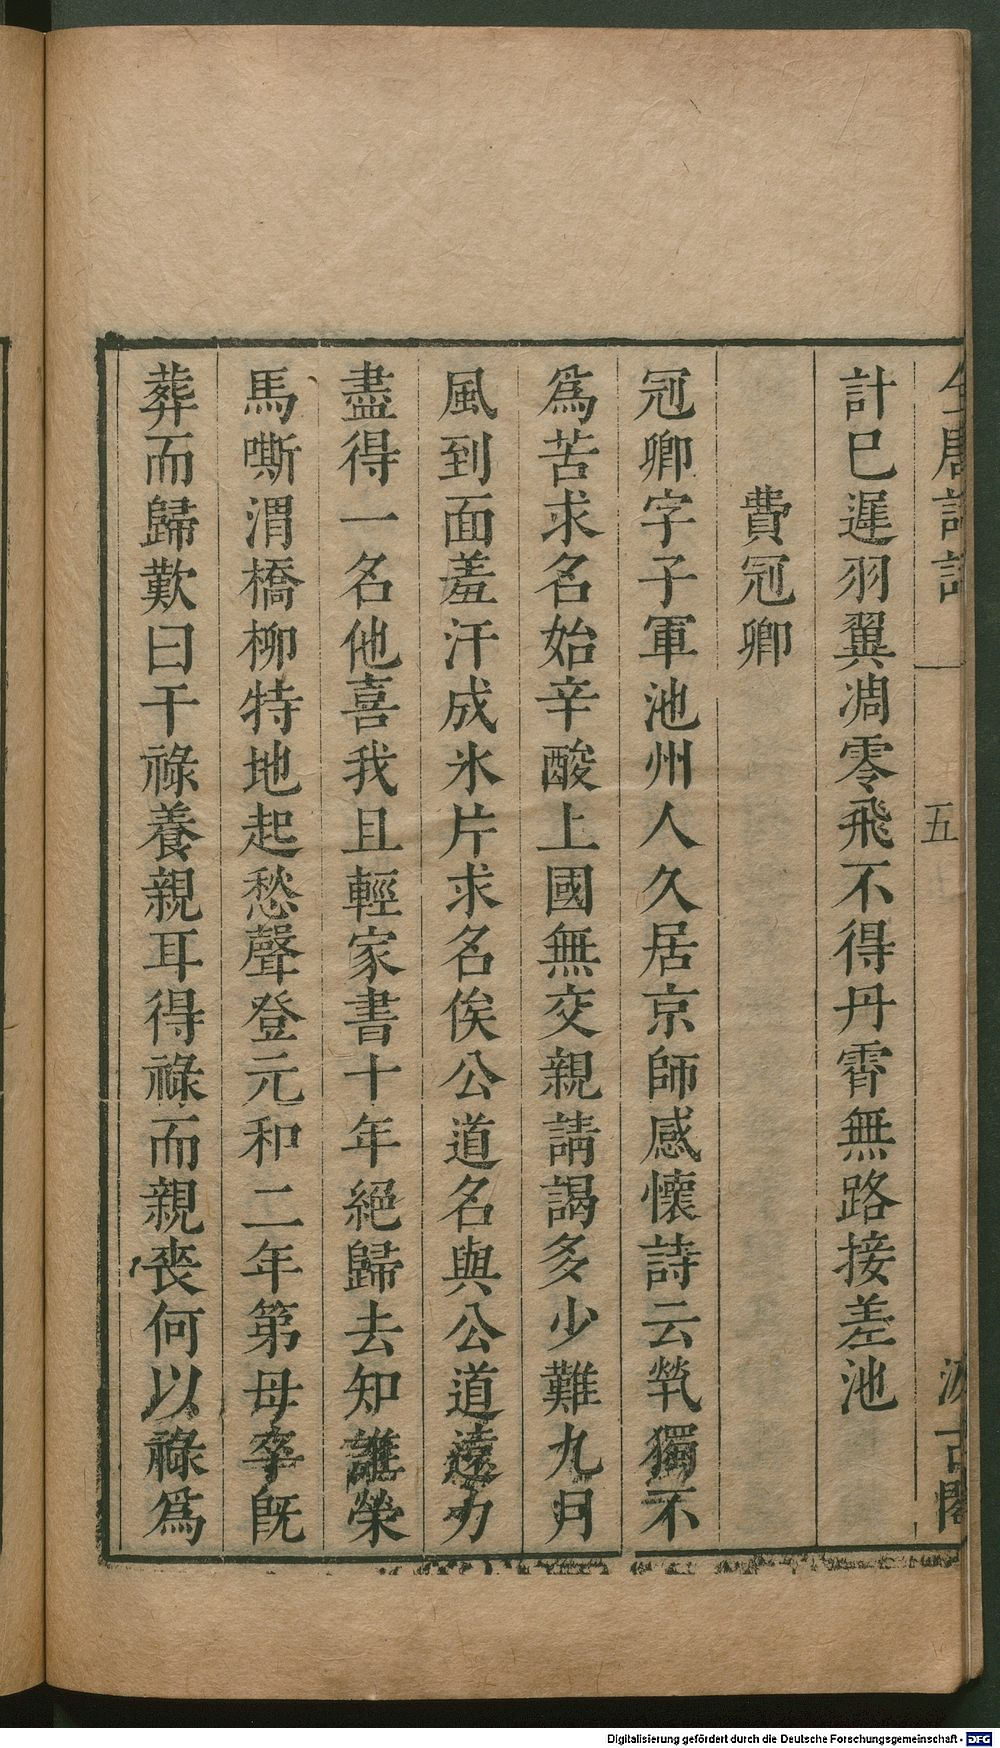 全唐詩話 一 五 汲古閣
計巳遲羽翼凋零飛不得丹霄無路接差池
費冠卿
冠卿字子軍池州人久居京師感懷詩云煢獨不
爲苦求名始辛酸上國無交親請謁多少難九月
風到面羞汗成氷片求名俟公道名與公道遠力
盡得一名他喜我且輕家書十年絕歸去知誰榮
馬嘶渭橋柳特地起愁聲登元和二年第母卒旣
葬而歸歎曰干祿養親耳得祿而親喪何以祿爲
Digitalisierung gefördert durch die Deutsche Forschungsgemeinschaft - DFG